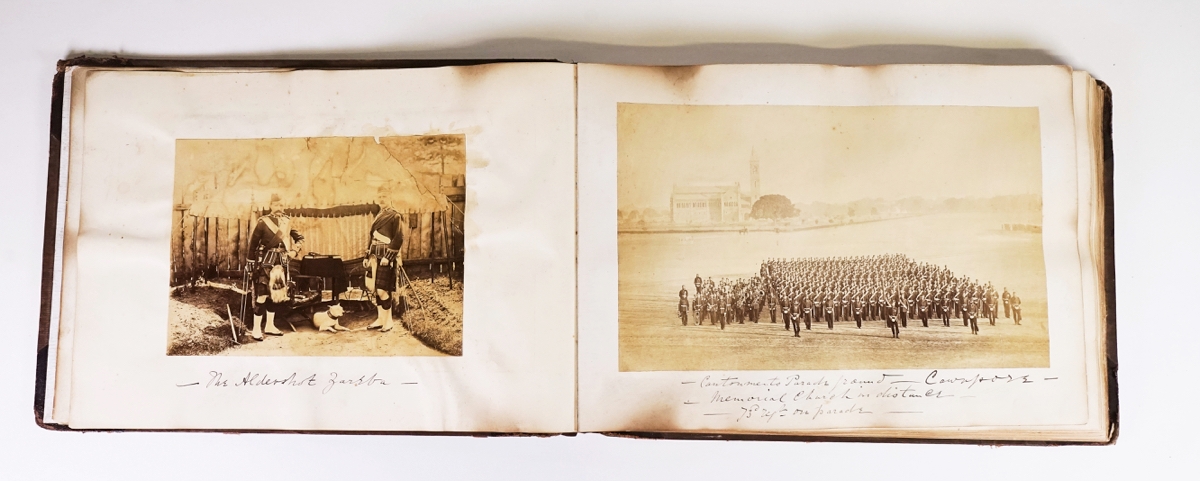 — The Aldershot Zareba —
— Cantonments Parade ground — Cawnpore —
— Memorial Church in distance —
— Regt on parade —